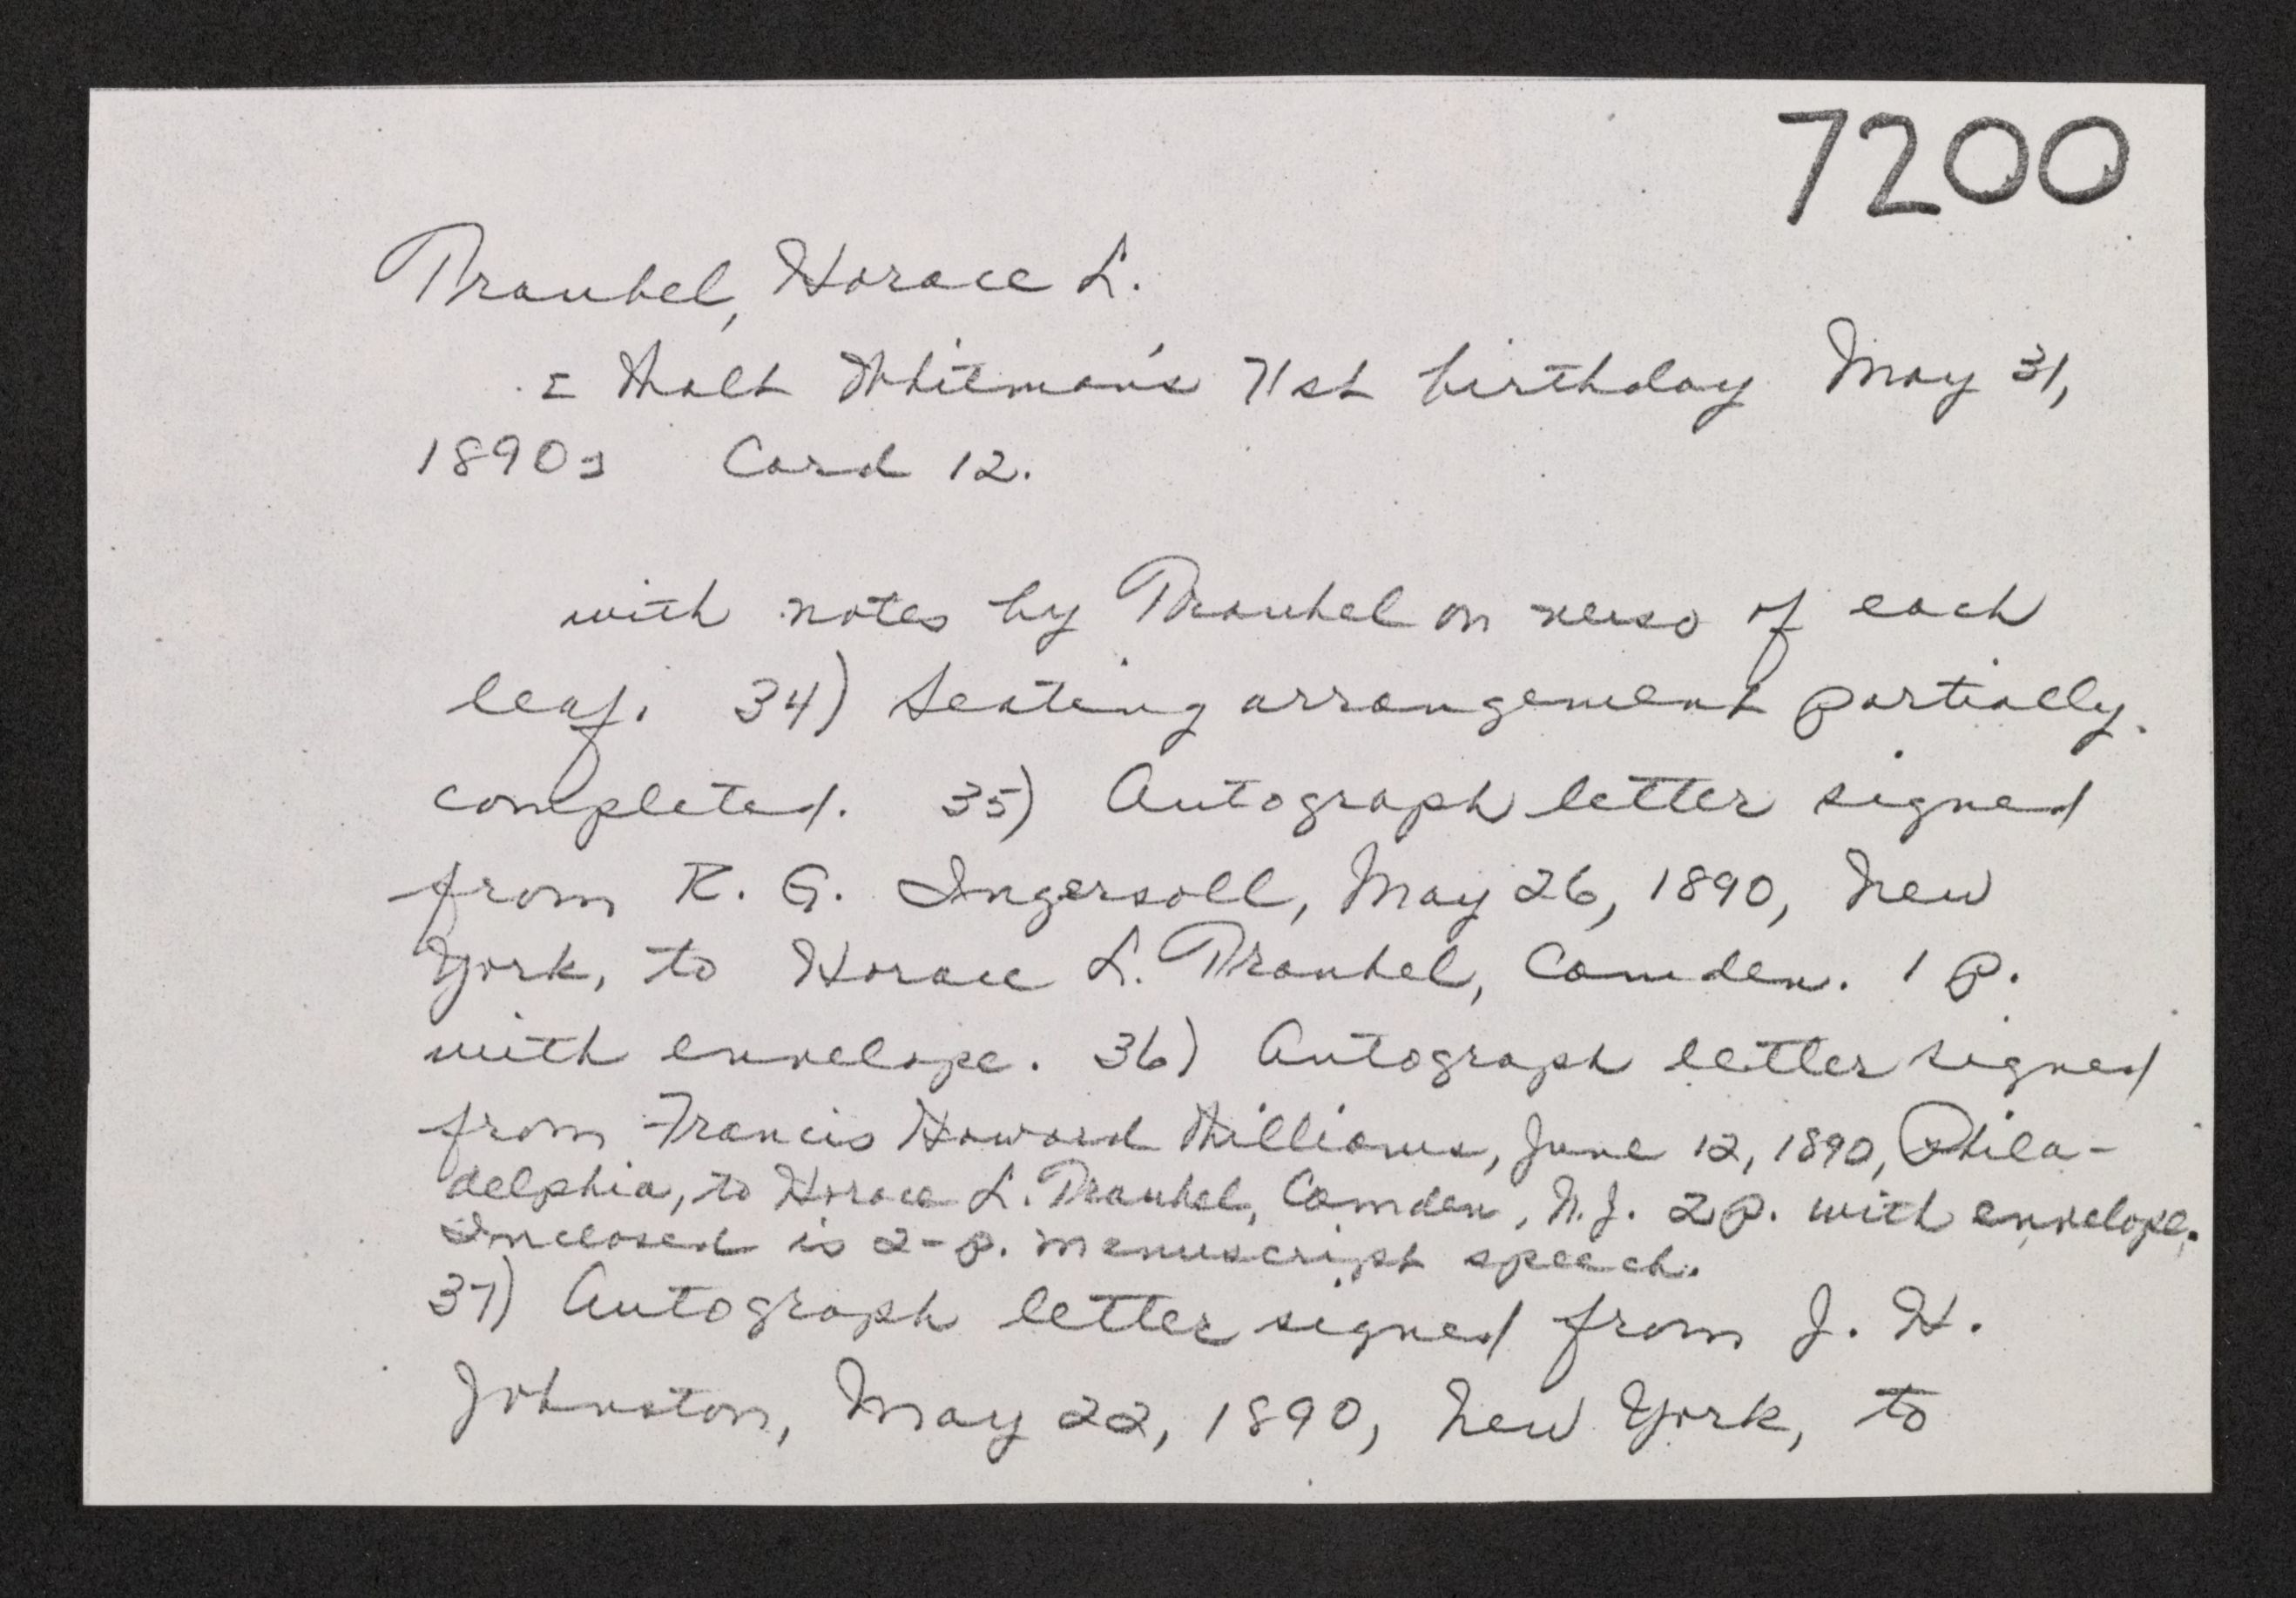 7200
Traubel, Horace L.
[Walt Whitman's 71st birthday May 31,
1890] Card 12.
with notes by Traubel on verso of each
leaf. 34) Seating arrangement partially
completed. 35) Autograph letter signed
from R. G. Ingersoll, May 26, 1890, New
York, to Horace L. Traubel, Camden. 1 p.
with envelope. 36) Autograph letter signed
from Francis Howard Williams, June 12, 1890, Phila-
delphia, to Horace L. Traubel, Camden, N.J. 2 p. with envelope.
Inclosed is 2-p. manuscript speech.
37) Autograph letter signed from J. H.
Johnston, May 22, 1890, New York, to